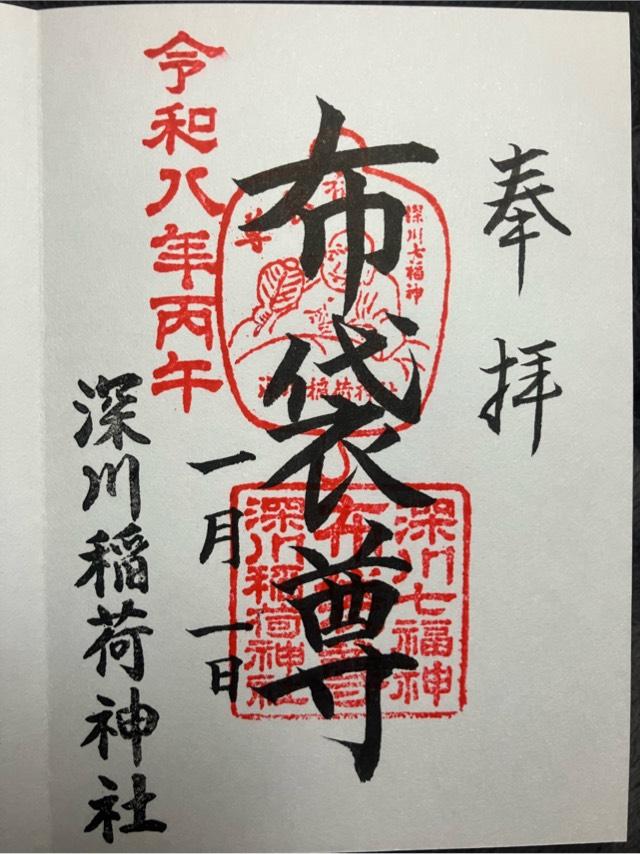 奉拝
布袋尊
深川七福神
布袋尊
深川稲荷神社
深川七福神
布袋尊
深川稲荷神社
令和八年丙午
一月一日
深川稲荷神社